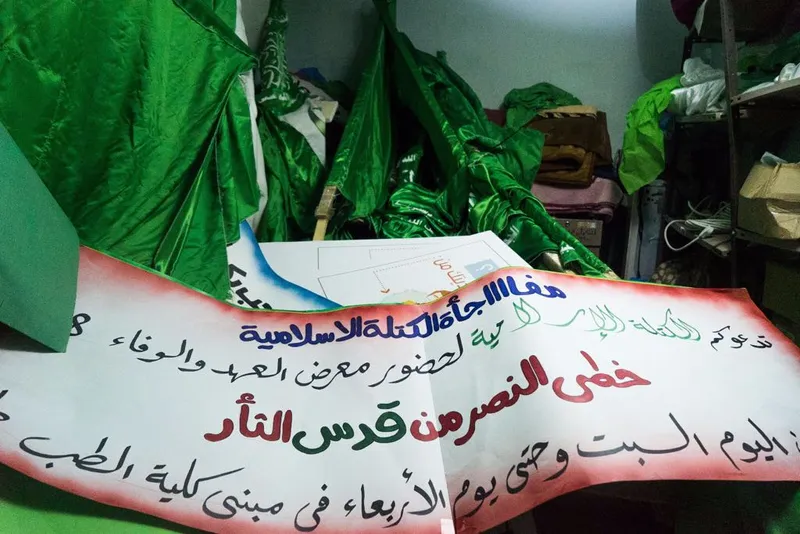 مفاااااجأة الكتلة الاسلامية
تدعوكم الكتلة الإسلامية لحضور معرض العهد والوفاء
خطى النصر من قدس الثأر
اليوم السبت وحتى يوم الأربعاء في مبنى كلية الطب